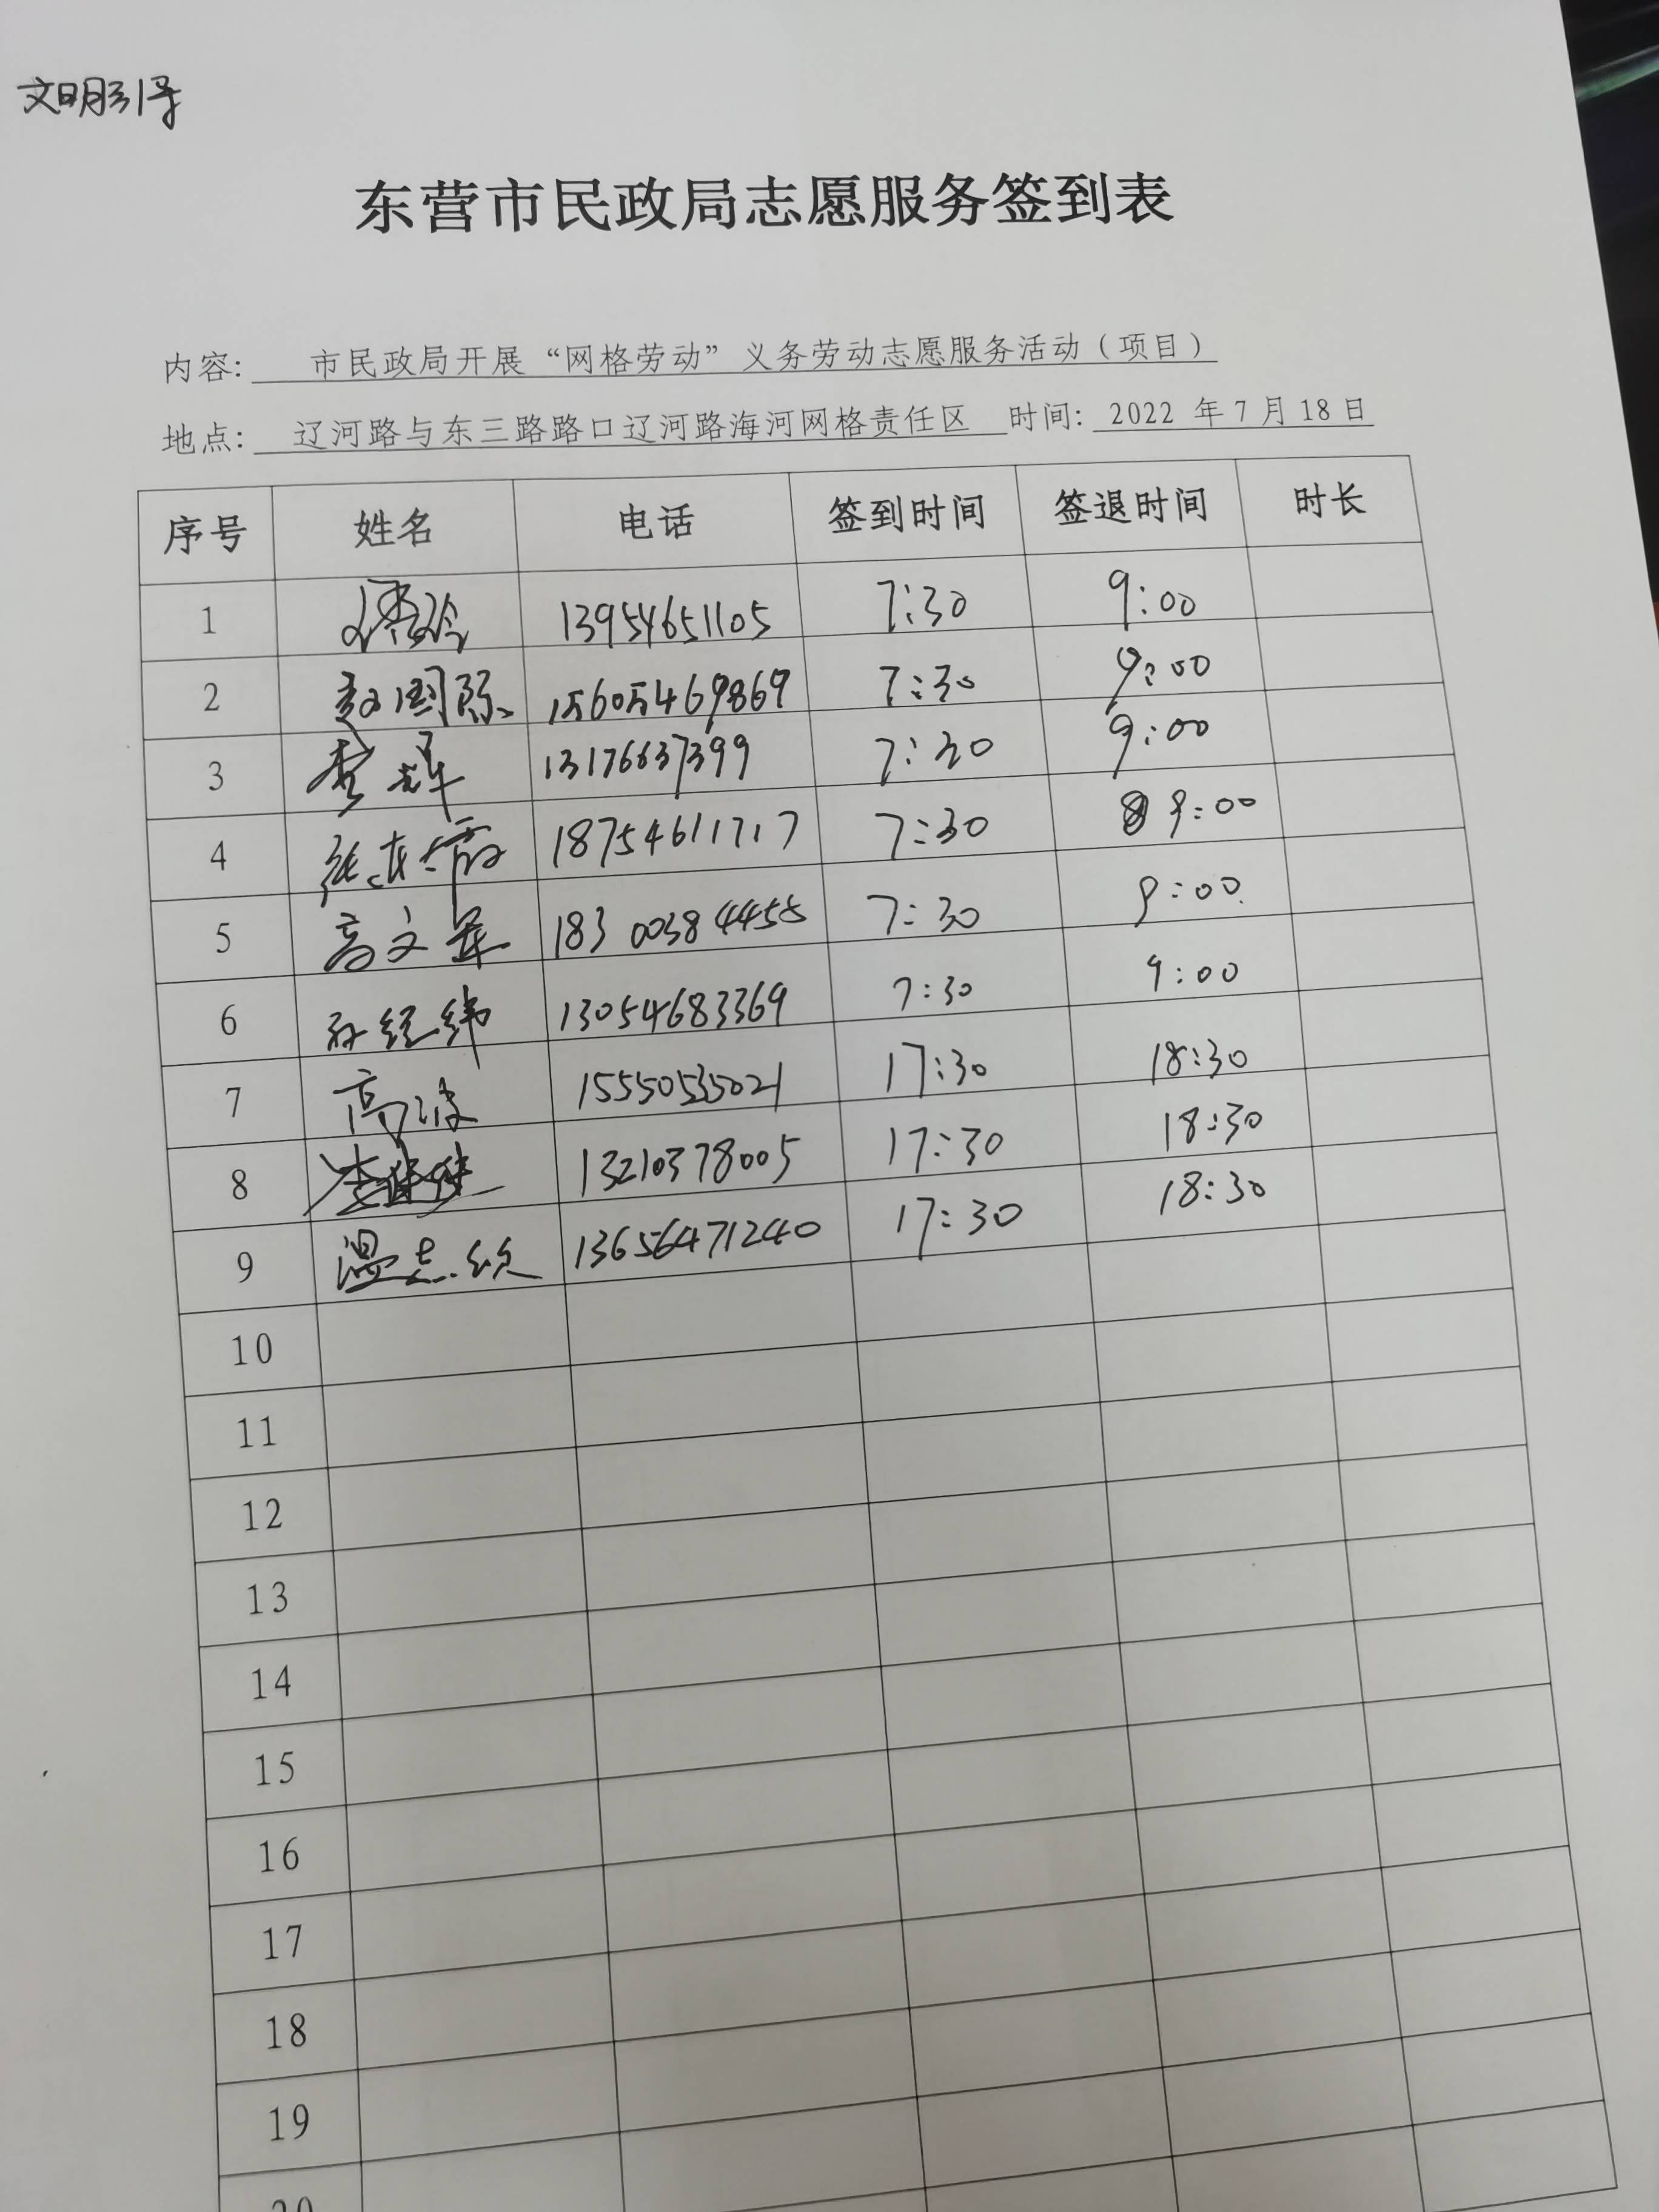 文明引导
东营市民政局志愿服务签到表
内容: 市民政局开展“网格劳动”义务劳动志愿服务活动(项目)
地点: 辽河路与东三路路口辽河路海河网格责任区 时间: 2022 年 7 月 18 日
序号 姓名 电话 签到时间 签退时间 时长
1 13954651105 7:30 9:00
2 赵国际 15605469869 7:30 9:00
3 13176637399 7:30 9:00
4 18754611717 7:30 9:00
5 高文 18300384455 7:30 9:00
6 孙经纬 13054683369 7:30 9:00
7 高波 15550535021 17:30 18:30
8 13210378005 17:30 18:30
9 温志 13656471240 17:30 18:30
10
11
12
13
14
15
16
17
18
19
20